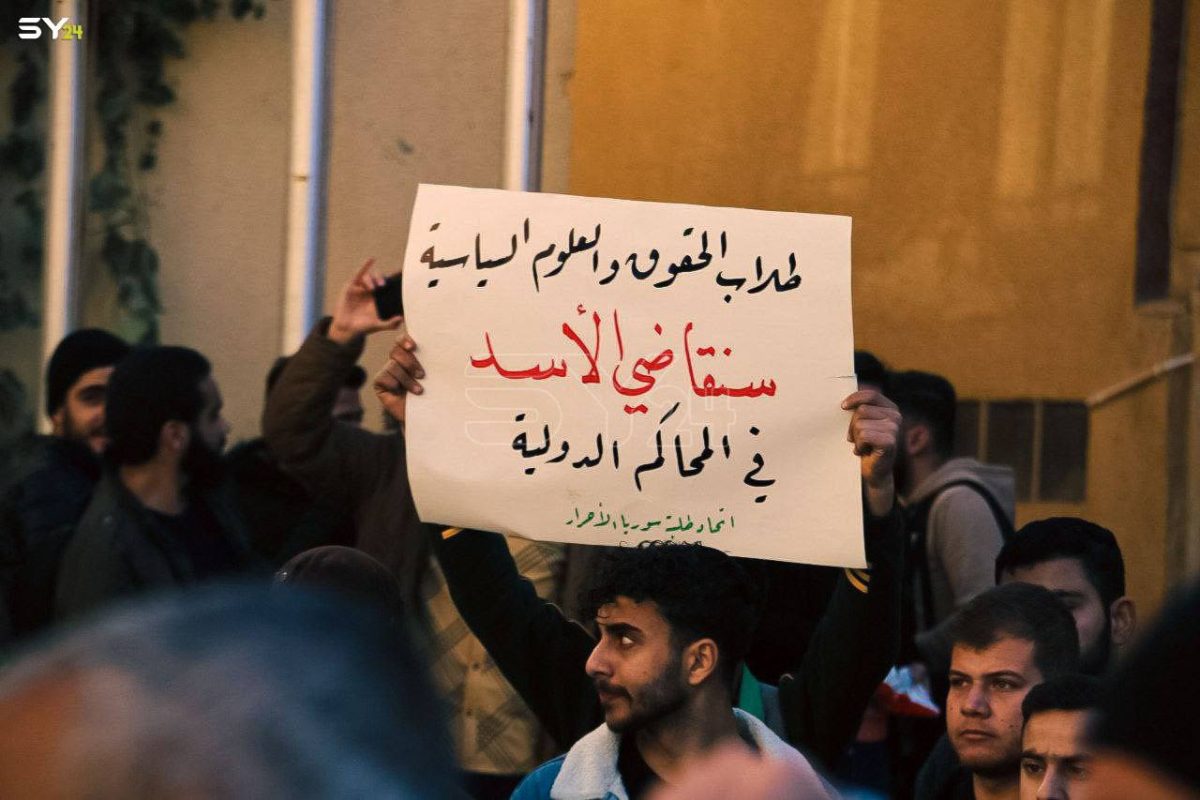 SY24
طلاب الحقوق والعلوم السياسية
سنقاضي الأسد
في المحاكم الدولية
اتحاد طلبة سوريا الأحرار
SY24